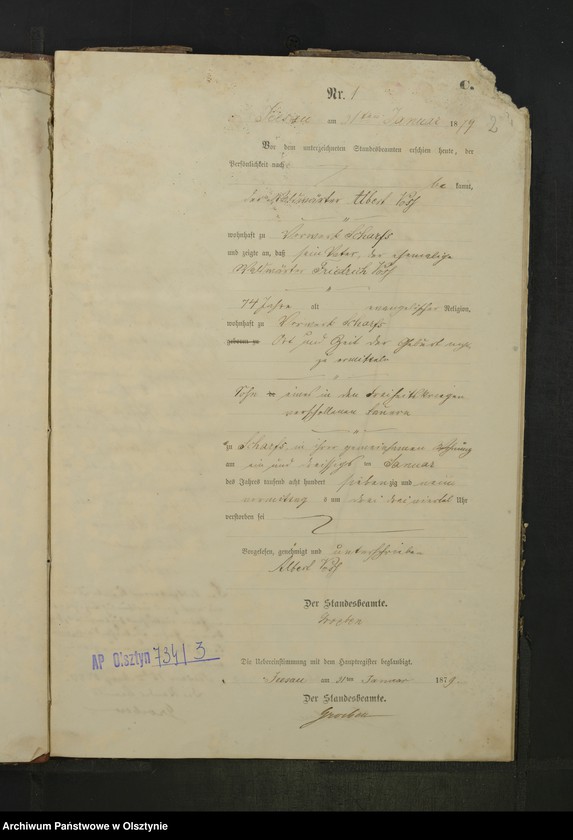 C.
Nr. 1
am 31ten Januar 1879
2
Vor dem unterzeichneten Standesbeamten erschien heute, der
Persönlichkeit nach
be kannt,
der Waldwärter Albert
wohnhaft zu Vorwerk Scharfs
und zeigte an, daß sein Vater, der ehemalige
Waldwärter Friedrich
74 Jahre alt evangelischer Religion,
wohnhaft zu Vorwerk Scharfs
geboren zu Ort und Zeit der Geburt
zu ermitteln
Sohn eines in den Freiheitskriegen
verschollenen
zu Scharfs, in ihrer gemeinsamen Wohnung
am ein und dreißigsten Januar
des Jahres tausend acht hundert siebenzig und neun
vormittag s um drei dreiviertel Uhr
verstorben sei
Vorgelesen, genehmigt und unterschrieben
Albert
Der Standesbeamte.
Groeben
AP Olsztyn 734/3
Die Uebereinstimmung mit dem Hauptregister beglaubigt.
am 31ten Januar 1879
Der Standesbeamte.
Groeben
Archiwum Państwowe w Olsztynie